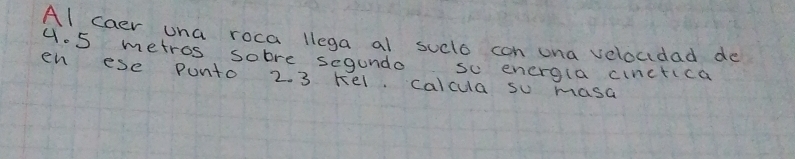 Al caer una roca llega al suelo con una velocidad de
4.5 metros sobre segundo su energia cinetica
en ese punto 2.3 Kel. calcula su masa